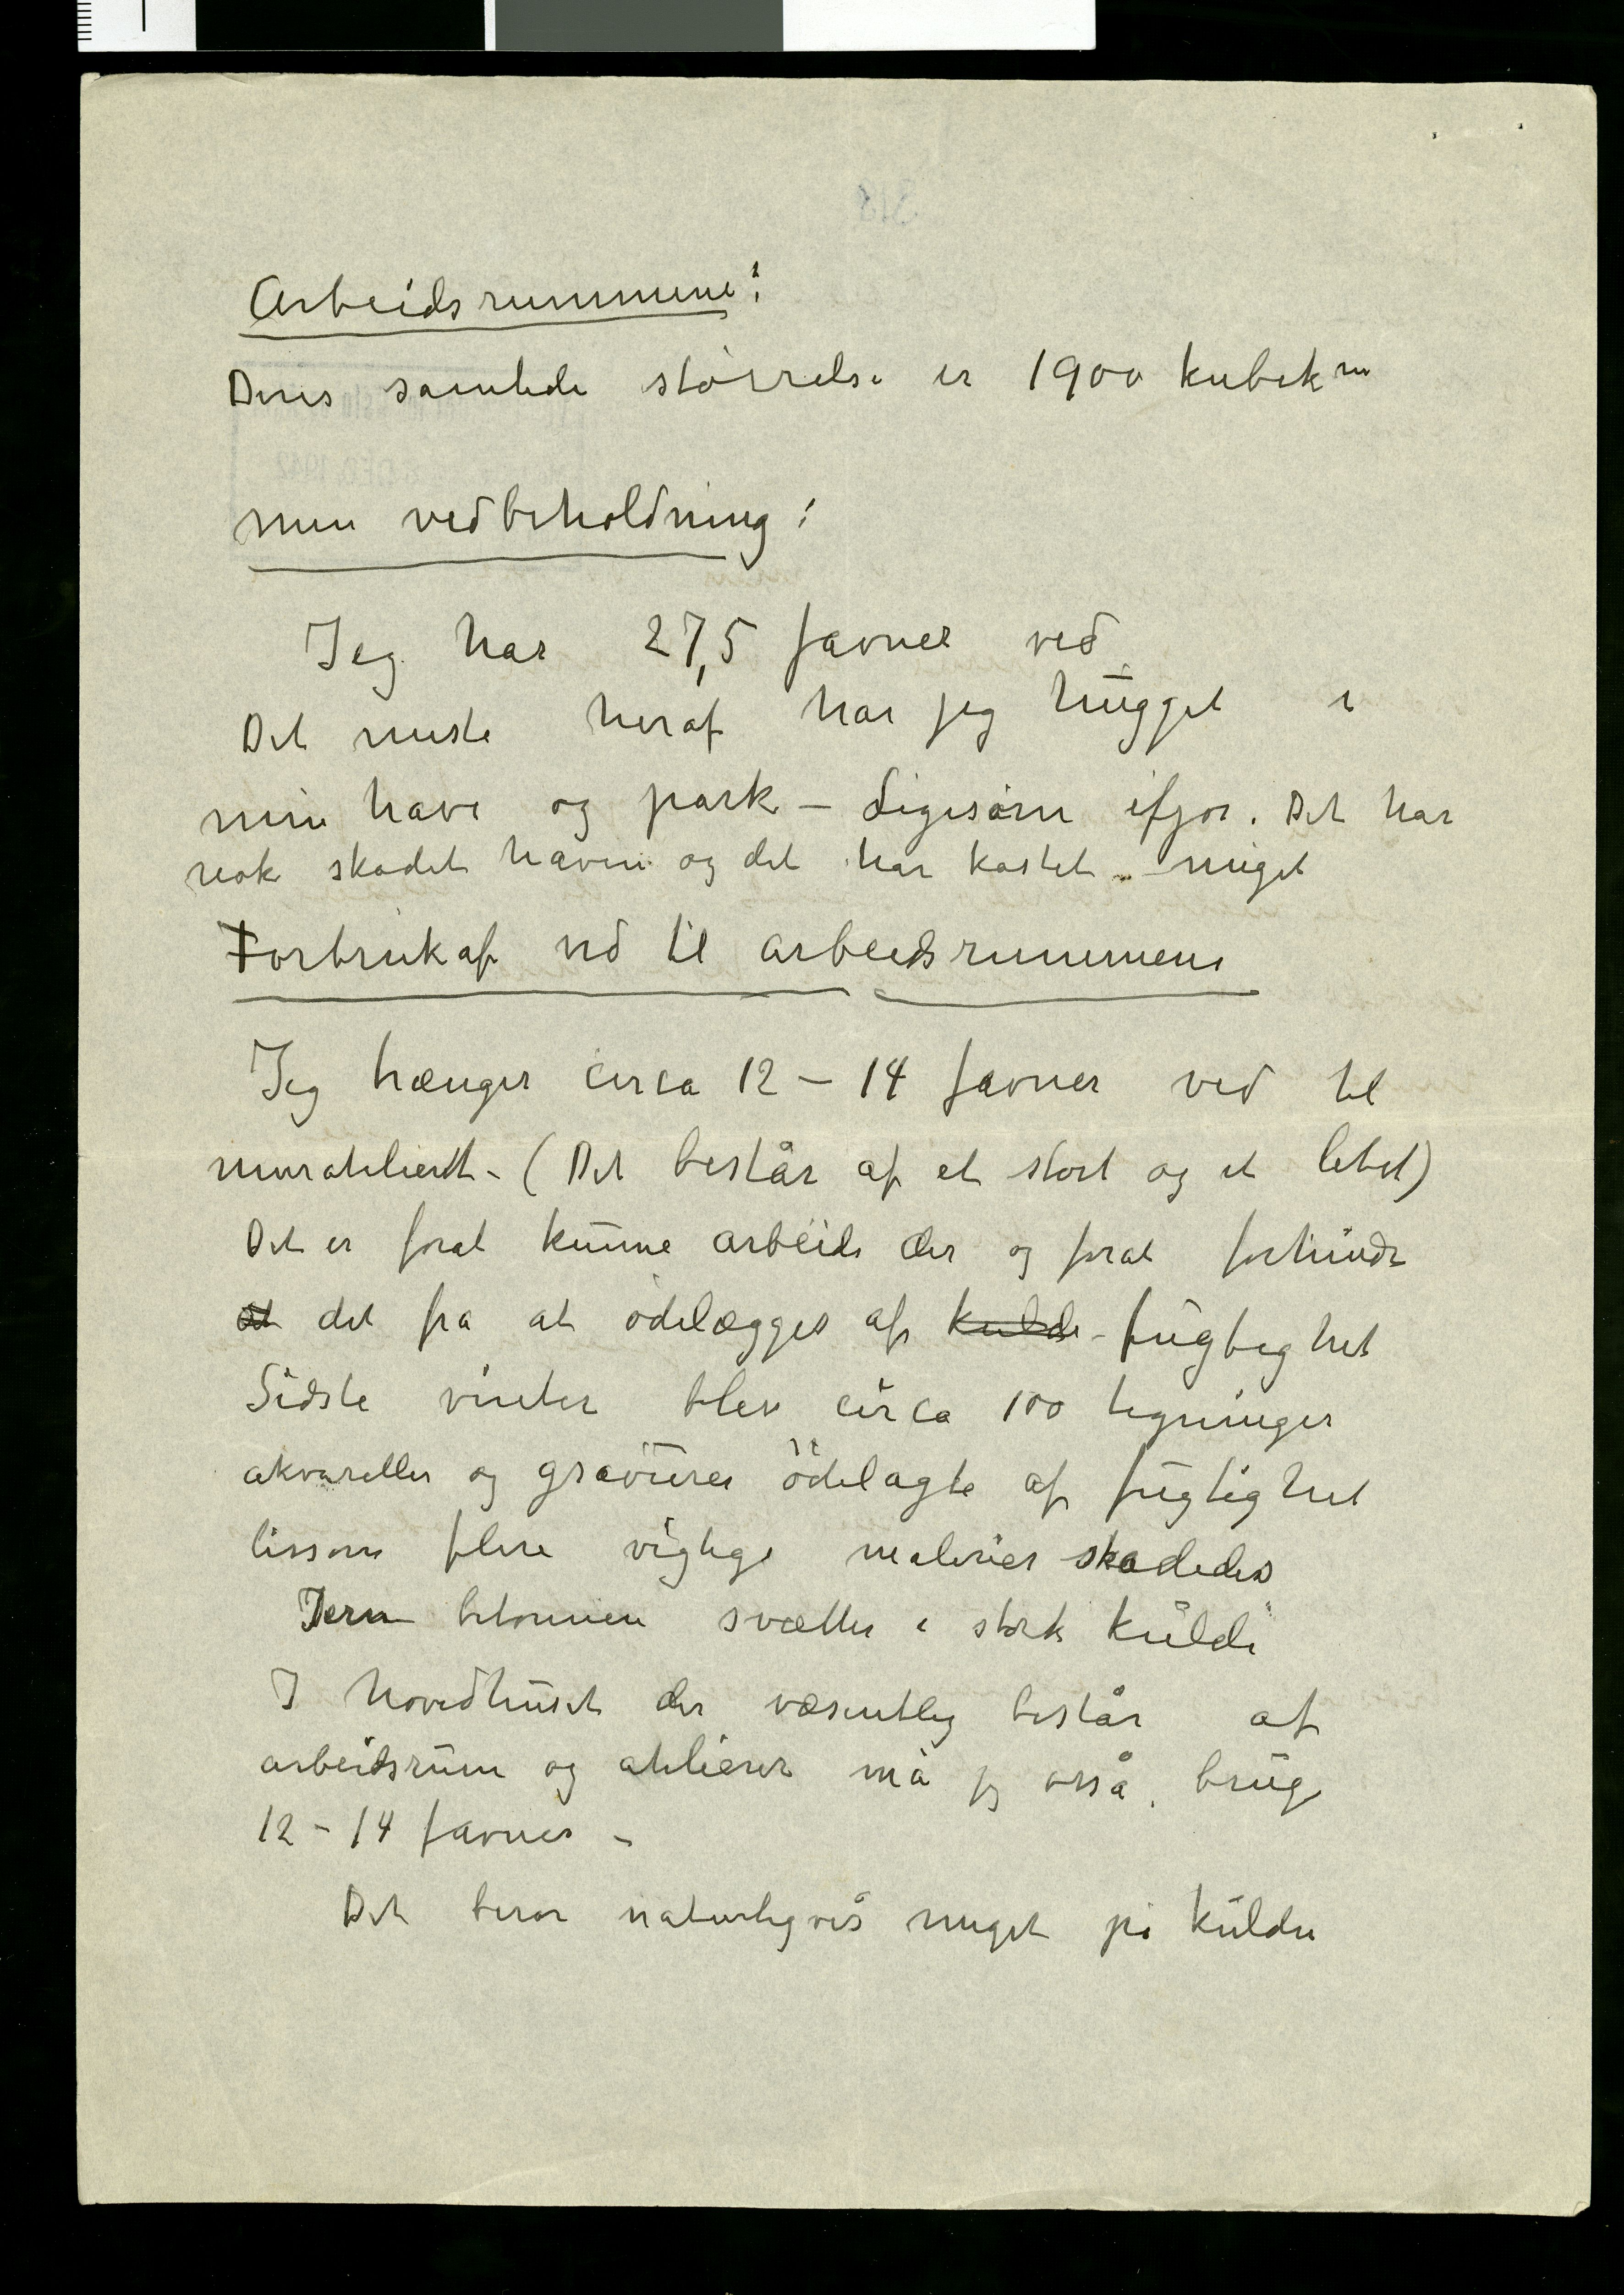 Arbeidsrummene:
Deres samlede størrelse er 1900 kubikm
min vedbeholdning:
Jeg har 27,5 favner ved
Det meste heraf har jeg hugget i
min have og park – Ligesom ifjor. Det har
nok skadet haven og det har kostet meget
Forbruk af ved til arbeidsrummene
Jeg trænger circa 12 – 14 favner ved til
muratelieret – (Det består af et stort og et litet)
Det er forat kunne arbeide der og forat forhindre
at det fra at ødelægges af kulde fugtighet
Sidste vinter blev circa 100 tegninger
akvareller og gravurer ødelagte af fugtighet
lissom flere vigtige malerier skadedes
Jern betonnen svætter i sterk kulde
I hovedhuset der væsentlig består af
arbeidsrum og atelierer må jeg også bruge
12 – 14 favner –
Det beror naturligvis meget på kulden